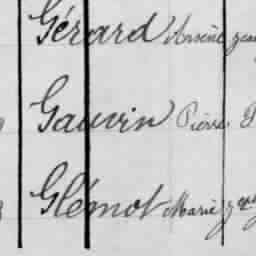 Gérard Arsène
Gauvin Pierre
Glémot Marie